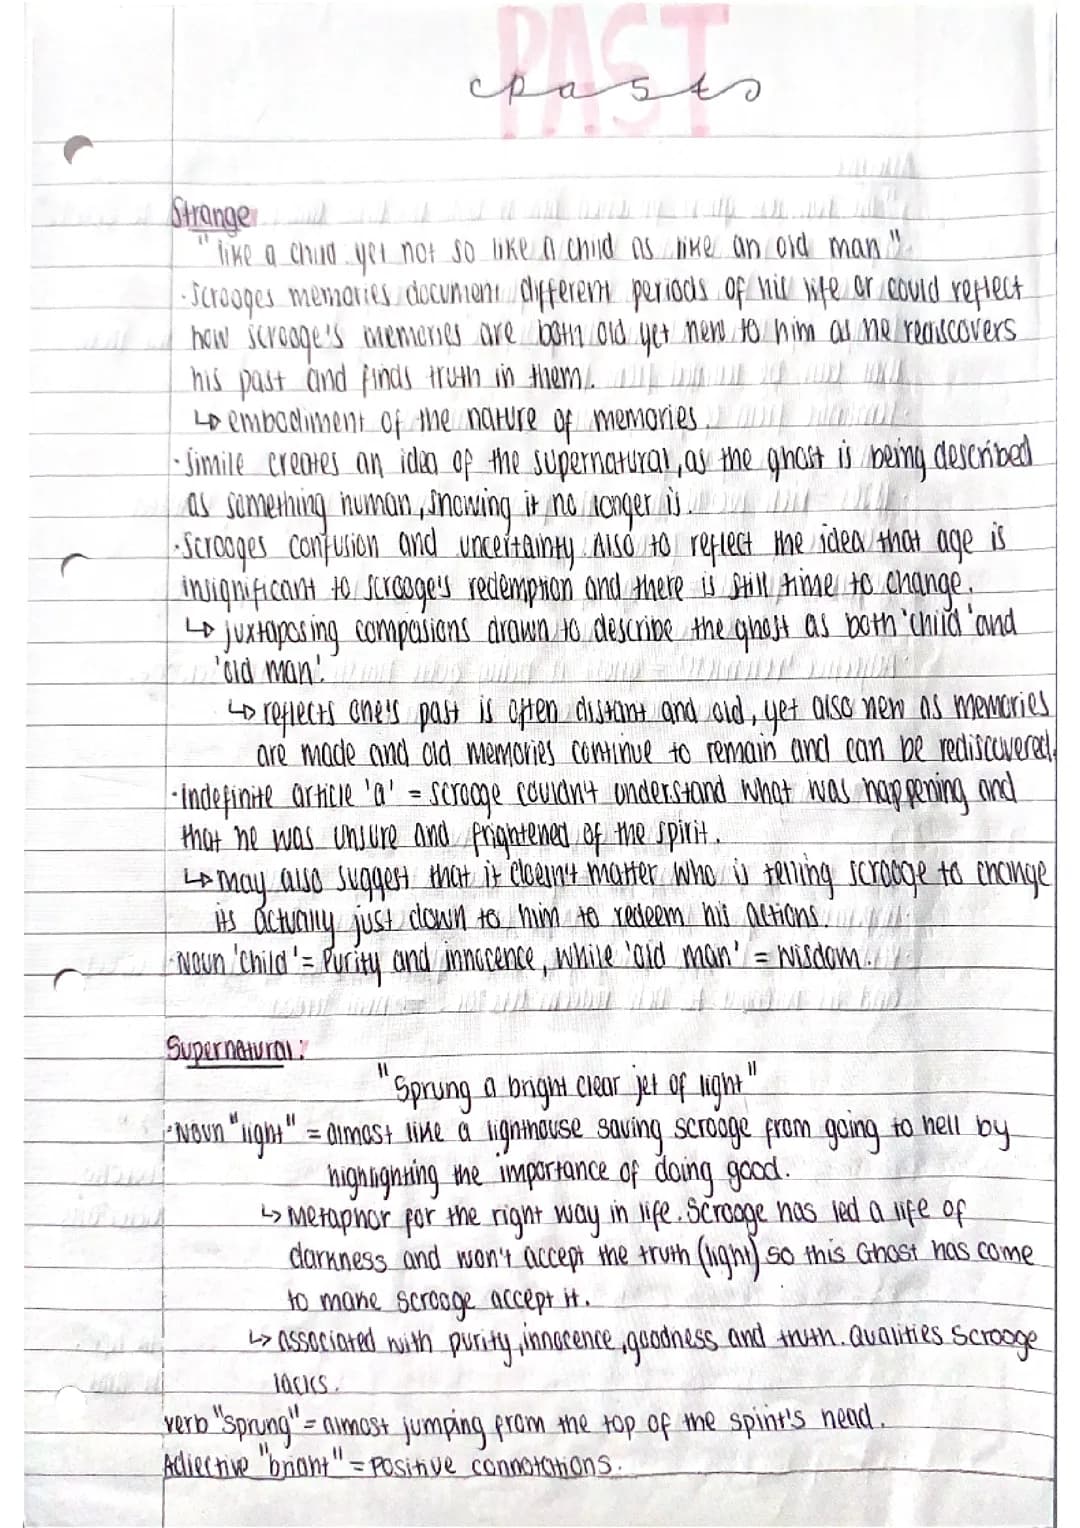 PAST
past
Strange
"like a child yet not so like a child as like an old man"
·Scrooges memories document different periods of his life or could reflect
how scrooge's memories are both old yet new to him as he rediscovers
his past and finds truth in them.
↳ embodiment of the nature of memories.
·Simile creates an idea of the supernatural, as the ghost is being described
as something human, showing it no longer is.
·Scrooges confusion and uncertainty. Also to reflect the idea that age is
insignificant to scrooge's redemption and there is still time to change.
↳ juxtaposing compasions drawn to describe the ghost as both 'child' and
'old man'.
↳ reflects one's past is often distant and old, yet also new as memories
are made and old memories continue to remain and can be rediscovered.
·indefinite article 'a' = scrooge couldn't understand what was happening and
that he was unsure and frightened of the spirit.
↳ may also suggest that it doesn't matter who is telling scrooge to change
its actually just down to him to redeem his actions.
·Noun 'child' = Purity and innocence, while 'old man' = wisdom.
Supernatural:
"Sprung a bright clear jet of light"
·Noun "light" = almost like a lighthouse saving scrooge from going to hell by
highlighting the importance of doing good.
↳ Metaphor for the right way in life. Scrooge has led a life of
darkness and won't accept the truth (light) so this Ghost has come
to make scrooge accept it.
↳ associated with purity, innocence, goodness and truth. Qualities Scrooge
lacks.
verb "Sprung" = almost jumping from the top of the spirit's head.
Adjective "bright" = Positive connotations.